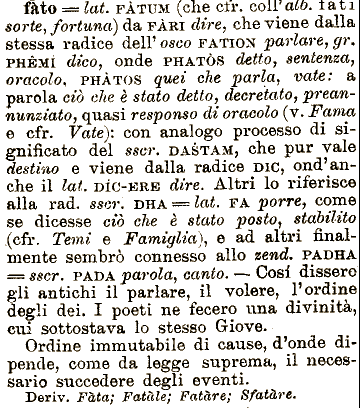 fàto = lat. FÀTUM (che cfr. coll'alb. fati
sorte, fortuna) da FÀRI dire, che viene dalla
stessa radice dell'osco FATION parlare, gr.
PHÊMÌ dico, onde PHATÒS detto, sentenza,
oracolo, PHÀTOS quei che parla, vate: a
parola ciò che è stato detto, decretato, prean-
nunziato, quasi responso di oracolo (v. Fama
e cfr. Vate): con analogo processo di si-
gnificato del sscr. DAŚTAM, che pur vale
destino e viene dalla radice DIC, ond'an-
che il lat. DÍC-ERE dire. Altri lo riferisce
alla rad. sscr. DHA = lat. FA porre, come
se dicesse ciò che è stato posto, stabilito
(cfr. Temi e Famiglia), e ad altri final-
mente sembrò connesso allo zend. PADHA
= sscr. PADA parola, canto. — Cosí dissero
gli antichi il parlare, il volere, l'ordine
degli dei. I poeti ne fecero una divinità,
cui sottostava lo stesso Giove.
Ordine immutabile di cause, d'onde di-
pende, come da legge suprema, il neces-
sario succedere degli eventi.
Deriv. Fàta; Fatàle; Fatàre; Sfatàre.